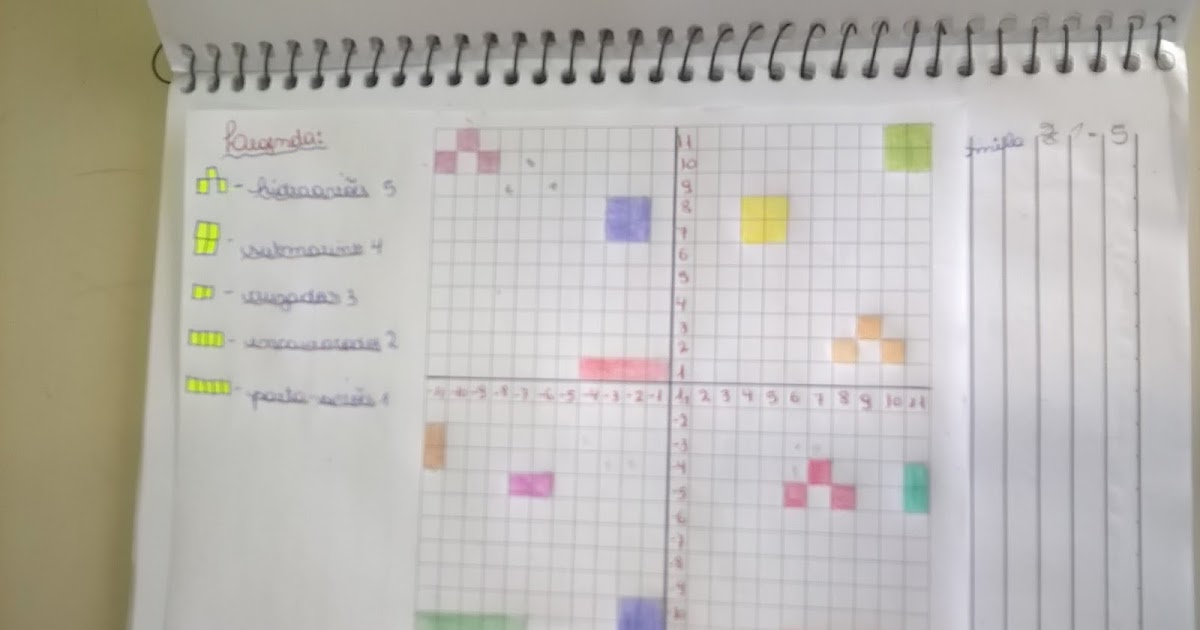 Legenda:
- hidroaviões 5
- submarino 4
- 3
- 2
- porta-aviões 1
11
10
9
8
7
6
5
4
3
2
1
-11 -10 -9 -8 -7 -6 -5 -4 -3 -2 -1 1 2 3 4 5 6 7 8 9 10 11
-2
-3
-4
-5
-6
-7
-8
-9
10